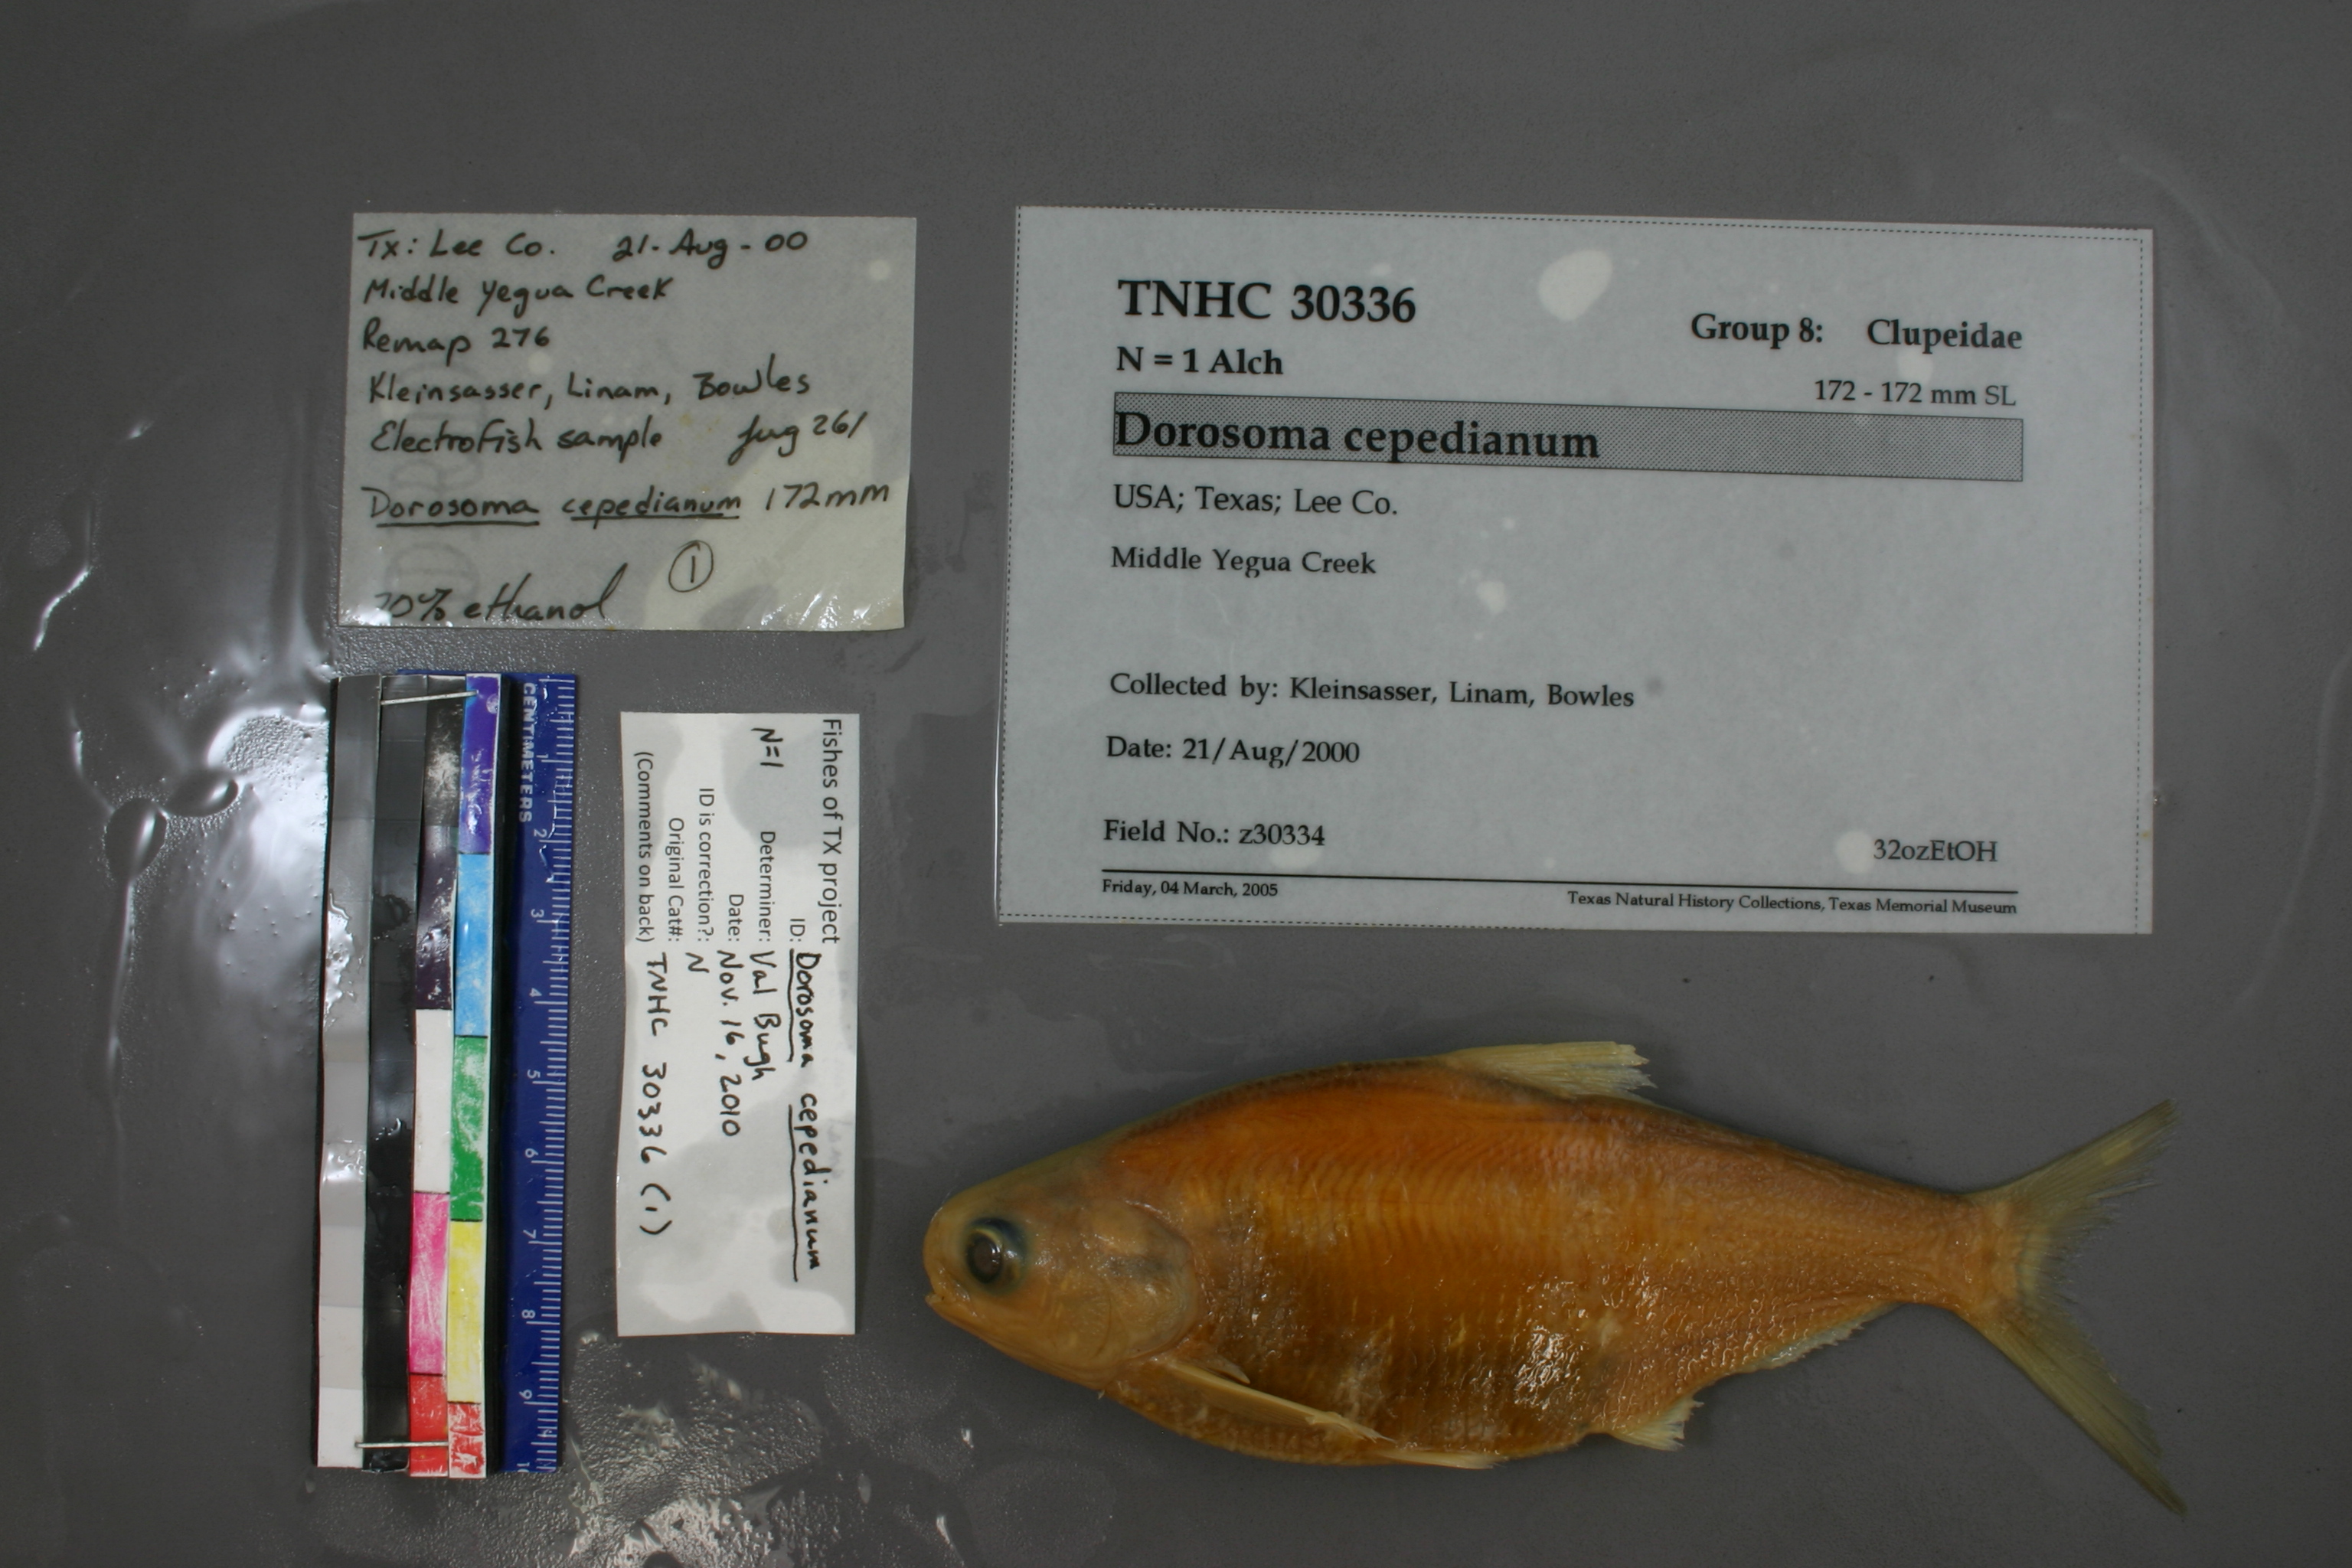 Tx: Lee Co. 21-Aug-00
Middle Yegua Creek
Remap 276
Kleinsasser, Linam, Bowles
Electrofish sample Jug 261
Dorosoma cepedianum 172mm
1
70% ethanol
TNHC 30336
Group 8: Clupeidae
N = 1 Alch
172 - 172 mm SL
Dorosoma cepedianum
USA; Texas; Lee Co.
Middle Yegua Creek
Collected by: Kleinsasser, Linam, Bowles
Date: 21/Aug/2000
Field No.: z30334
32ozEtOH
Friday, 04 March, 2005
Texas Natural History Collections, Texas Memorial Museum
Fishes of TX project
ID: Dorosoma cepedianum
N=1 Determiner: Val Bugh
Date: Nov. 16, 2010
ID is correction?: N
Original Cat#: TNHC 30336 (1)
(Comments on back)
CENTIMETERS
1 2 3 4 5 6 7 8 9 10